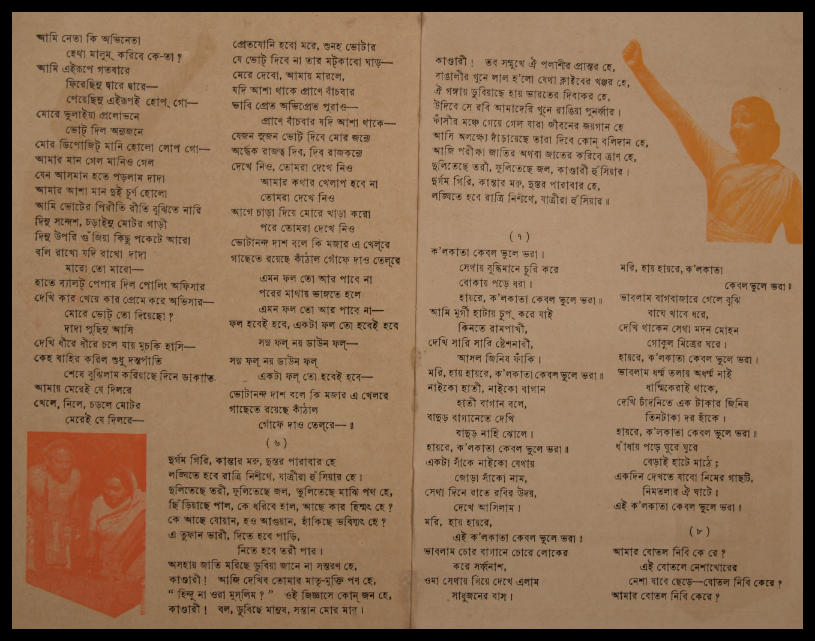 আমি নেতা কি অভিনেতা
হেথা মালুম্ করিবে কে-তা ?
আমি এইরূপে গতবারে
ফিরেছিনু দ্বারে দ্বারে—
পেয়েছিনু এইরূপই হোপ্ গো—
মোরে ভুলাইয়া প্রলোভনে
ভোট্ দিল অন্যজনে
মোর ডিপোজিট্ মানি হোলো লোপ গো—
আমার মান গেল মানিও গেল
যেন আসমান হতে পড়লাম দাদা
আমার আশা মান দুই চূর্ণ হোলো
আমি ভোটের পিরীতি রীতি বুঝিতে নারি
দিনু সন্দেশ, চড়াইনু মোটর গাড়ী
দিনু উপরি গুঁজিয়া কিছু পকেটে আরো
বলি রাখো যদি রাখো দাদা
মারো তো মারো—
হাতে ব্যালট্ পেপার দিল পোলিং অফিসার
দেখি কার খেয়ে কার প্রেমে করে অভিসার—
মোরে ভোট্ তো দিয়েছো ?
দাদা পুছিনু আসি
দেখি ধীরে ধীরে চলে যায় মুচকি হাসি—
কেহ বাহির করিল শুধু দন্তপাঁতি
শেষে বুঝিলাম করিয়াছে দিনে ডাকাতি
আমায় মেরেই যে দিলরে
খেলে, নিলে, চড়লে মোটর
মেরেই যে দিলরে—
প্রেতযোনি হবো মরে, শুনহ ভোটার
যে ভোট্ দিবে না তার মট্‌কাবো ঘাড়—
মেরে দেবো, আমায় মারলে,
যদি আশা থাকে প্রাণে বাঁচবার
ভাবি প্রেত অভিপ্রেত পুরাও—
প্রাণে বাঁচবার যদি আশা থাকে—
যেজন সুজন ভোট্ দিবে মোর জন্যে
অর্দ্ধেক রাজত্ব দিব, দিব রাজকন্যে
দেখে নিও, তোমরা দেখে নিও
আমার কথার খেলাপ হবে না
তোমরা দেখে নিও
আগে চাড়া দিয়ে মোরে খাড়া করো
পরে তোমরা দেখে নিও
ভোটানন্দ দাশ বলে কি মজার এ খেল্‌রে
গাছেতে রয়েছে কাঁঠাল গোঁফে দাও তেল্‌রে
এমন ফল তো আর পাবে না
পরের মাথায় ভাঙ্গতে হলে
এমন ফল তো আর পাবে না—
ফল হবেই হবে, একটা ফল তো হবেই হবে
সপ্ন ফল্ নয় ডাউন ফল্—
সপ্ন ফল্ নয় ডাউন ফল্
একটা ফল্ তো হবেই হবে—
ভোটানন্দ দাশ বলে কি মজার এ খেলরে
গাছেতে রয়েছে কাঁঠাল
গোঁফে দাও তেল্‌রে—॥
( ৬ )
দুর্গম গিরি, কান্তার মরু, দুস্তর পারাবার হে
লঙ্ঘিতে হবে রাত্রি নিশীথে, যাত্রীরা হুঁসিয়ার হে।
দুলিতেছে তরী, ফুলিতেছে জল, ভুলিতেছে মাঝি পথ হে,
ছিঁড়িয়াছে পাল, কে ধরিবে হাল, আছে কার হিম্মৎ হে ?
কে আছে যোয়ান, হও আগুয়ান, হাঁকিছে ভবিষ্যৎ হে ?
এ তুফান ভারী, দিতে হবে পাড়ি,
নিতে হবে তরী পার।
অসহায় জাতি মরিছে ডুবিয়া জানে না সন্তরণ হে,
কাণ্ডারী! আজি দেখিব তোমার মাতৃ-মুক্তি পণ হে,
“ হিন্দু না ওরা মুস্‌লিম ? ” ওই জিজ্ঞাসে কোন্ জন হে,
কাণ্ডারী! বল, ডুবিছে মানুষ, সন্তান মোর মার।
কাণ্ডারী! তব সম্মুখে ঐ পলাশীর প্রান্তর হে,
বাঙালীর খুনে লাল হ’লো যেথা ক্লাইবের খঞ্জর হে,
ঐ গঙ্গায় ডুবিয়াছে হায় ভারতের দিবাকর হে,
উদিবে সে রবি আমাদেরি খুনে রাঙিয়া পুনর্ব্বার।
ফাঁসীর মঞ্চে গেয়ে গেল যারা জীবনের জয়গান হে
আসি অলক্ষ্যে দাঁড়ায়েছে তারা দিবে কোন্ বলিদান হে,
আজি পরীক্ষা জাতির অথবা জাতের করিবে ত্রাণ হে,
দুলিতেছে তরী, ফুলিতেছে জল, কাণ্ডারী হুঁসিয়ার।
দুর্গম গিরি, কান্তার মরু, দুস্তর পারাবার হে,
লঙ্ঘিতে হবে রাত্রি নিশীথে, যাত্রীরা হুঁসিয়ার॥
( ৭ )
ক’লকাতা কেবল ভুলে ভরা।
সেথায় বুদ্ধিমানে চুরি করে
বোকায় পড়ে ধরা।
হায়রে, ক’লকাতা কেবল ভুলে ভরা॥
আমি মুর্গী হাটায় চুপ্ করে যাই
কিনতে রামপাখী,
দেখি সারি সারি ষ্টেশনারী,
আসল জিনিষ ফাঁকি।
মরি, হায় হায়রে, ক’লকাতা কেবল ভুলে ভরা॥
নাইকো হাতী, নাইকো বাগান
হাতী বাগান বলে,
বাদুড় বাগানেতে দেখি
বাদুড় নাহি ঝোলে।
হায়রে, ক’লকাতা কেবল ভুলে ভরা॥
একটা সাঁকে নাইকো যেথায়
জোড়া সাঁকো নাম,
সেথা দিনে রাতে রবির উদয়,
দেখে আসিলাম।
মরি, হায় হায়রে,
এই ক’লকাতা কেবল ভুলে ভরা॥
ভাবলাম চোর বাগানে চোরে লোকের
করে সর্ব্বনাশ,
ওমা সেথায় গিয়ে দেখে এলাম
সাধুজনের বাস।
মরি, হায় হায়রে, ক’লকাতা
কেবল ভুলে ভরা॥
ভাবলাম বাগবাজারে গেলে বুঝি
বাঘে খাবে ধরে,
দেখি থাকেন সেথা মদন মোহন
গোকুল মিত্রের ঘরে।
হায়রে, ক’লকাতা কেবল ভুলে ভরা।
ভাবলাম ধর্ম্ম তলায় অধর্ম্ম নাই
ধার্ম্মিকেরাই থাকে,
দেখি চাঁদনিতে এক টাকার জিনিষ
তিনটাকা দর হাঁকে।
হায়রে, ক’লকাতা কেবল ভুলে ভরা॥
ধাঁধায় পড়ে ঘুরে ঘুরে
বেড়াই হাটে মাঠে;
একদিন দেখতে যাবো নিমের গাছটি,
নিমতলার ঐ ঘাটে।
এই ক’লকাতা কেবল ভুলে ভরা।
( ৮ )
আমার বোতল নিবি কে রে ?
এই বোতলে নেশাখোরের
নেশা যাবে ছেড়ে—বোতল নিবি কেরে ?
আমার বোতল নিবি কেরে ?